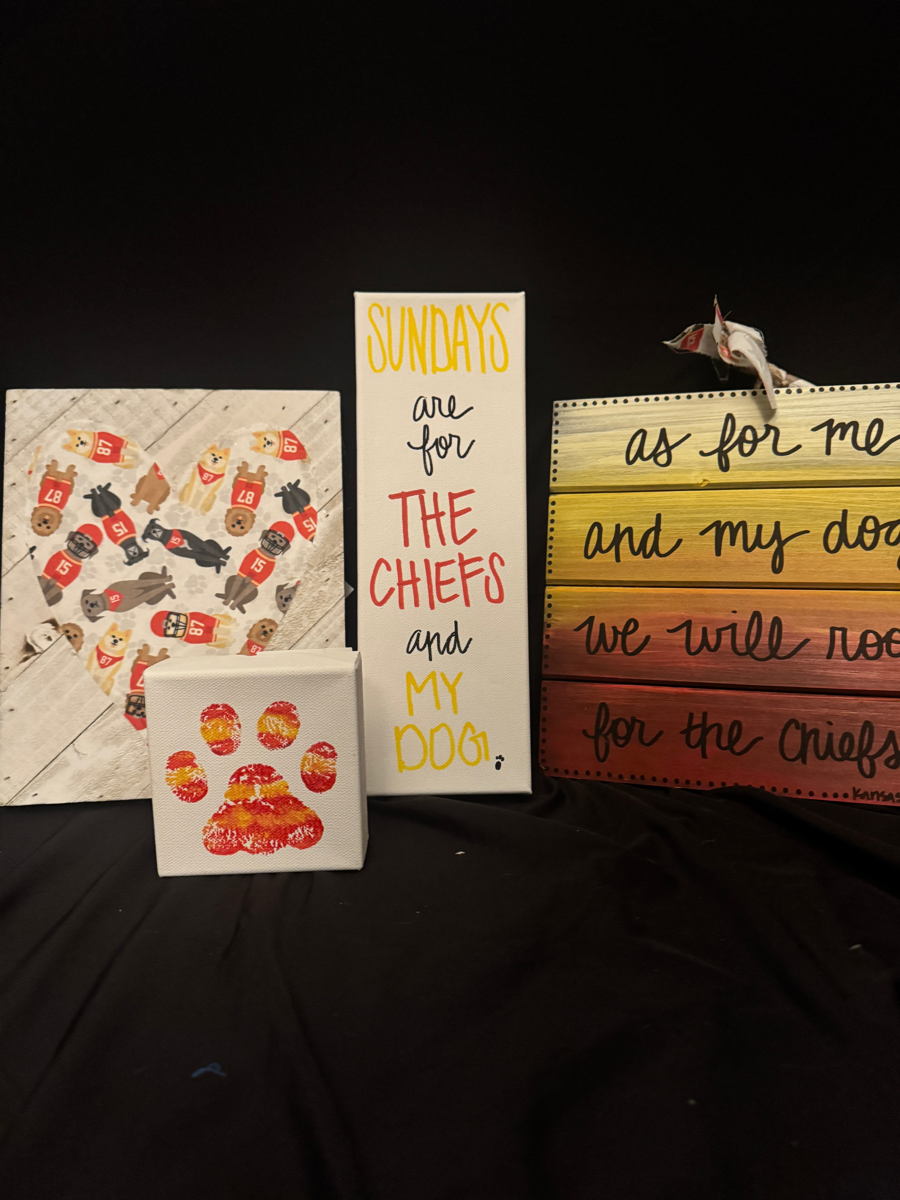 SUNDAYS
are
for
THE
CHIEFS
and
MY
DOG.
as for me
and my dog
we will roo
for the Chiefs
Kansas
87
87
87
87
87
15
15
15
15
15
87